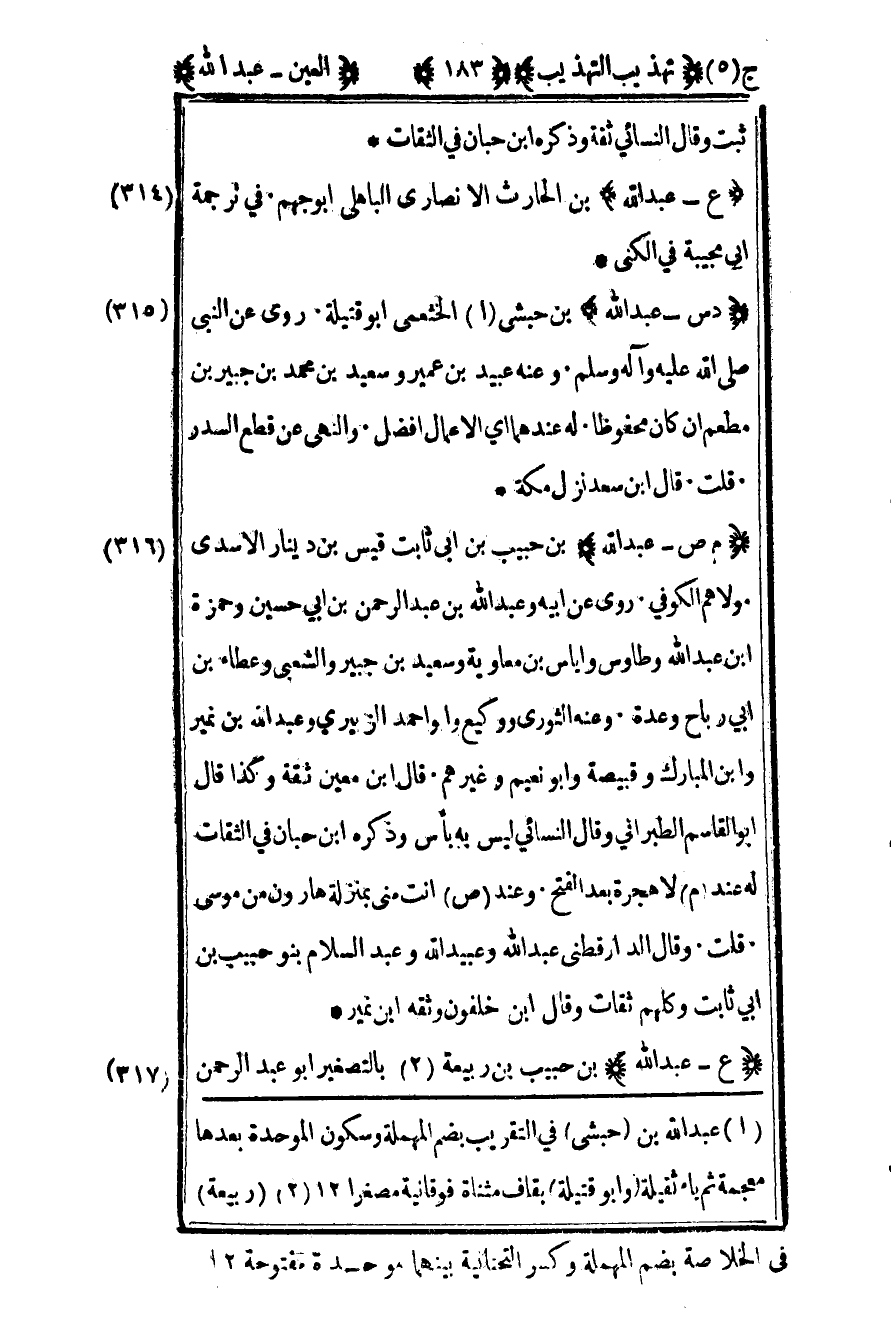 ج(٥) ﴿ تهذيب التهذيب ﴾ ﴿ ١٨٣ ﴾ ﴿ العين ـ عبدالله ﴾
ثبت وقال النسائي ثقة وذكره ابن حبان في الثقات *
﴿ ع ـ عبدالله ﴾ بن الحارث الانصارى الباهلى ابوجهم ٠ في ترجمة (٣١٤)
ابي مجيبة في الكنى *
﴿ دس ـ عبدالله ﴾ بن حبشى (١) الخثعمى ابو قتيلة ٠ روى عن النبى (٣١٥)
صلى الله عليه وآله وسلم ٠ وعنه عبيد بن عمير وسعيد بن محمد بن جبير بن
مطعم ان كان محفوظا ٠ له عندهما اي الاعمال افضل ٠ والنهى عن قطع السدر
٠ قلت ٠ قال ابن سعد نزل مكة *
﴿ م ص ـ عبدالله ﴾ بن حبيب بن ابي ثابت قيس بن دينار الاسدى (٣١٦)
٠ولاهم الكوفي ٠ روى عن ابيه وعبدالله بن عبدالرحمن بن ابي حسين وحمزة
ابن عبدالله وطاوس واياس بن معاوية وسعيد بن جبير والشعبى وعطاء بن
ابي رباح وعدة ٠ وعنه الثورى ووكيع وابواحمد الزبيري وعبدالله بن نمير
وابن المبارك وقبيصة وابو نعيم وغيرهم ٠ قال ابن معين ثقة وكذا قال
ابوالقاسم الطبراني وقال النسائي ليس به بأس وذكره ابن حبان في الثقات
له عند (م) لا هجرة بعد الفتح ٠ وعند (ص) انت منى بمنزلة هارون من موسى
٠ قلت ٠ وقال الدارقطنى عبدالله وعبيدالله وعبد السلام بنو حبيب بن
ابي ثابت وكلهم ثقات وقال ابن خلفون وثقه ابن نمير *
﴿ ع ـ عبدالله ﴾ بن حبيب بن ربيعة (٢) بالتصغير ابو عبد الرحمن (٣١٧)
(١) عبدالله بن (حبشى) في التقريب بضم المهملة وسكون الموحدة بعدها
معجمة ثم ياء ثقيلة (وابو قتيلة) بقاف مثناة فوقانية مصغرا ١٢ (٢) (ربيعة)
فى الخلاصة بضم المهملة وكسر التحتانية بينهما موحدة مفتوحة ١٢